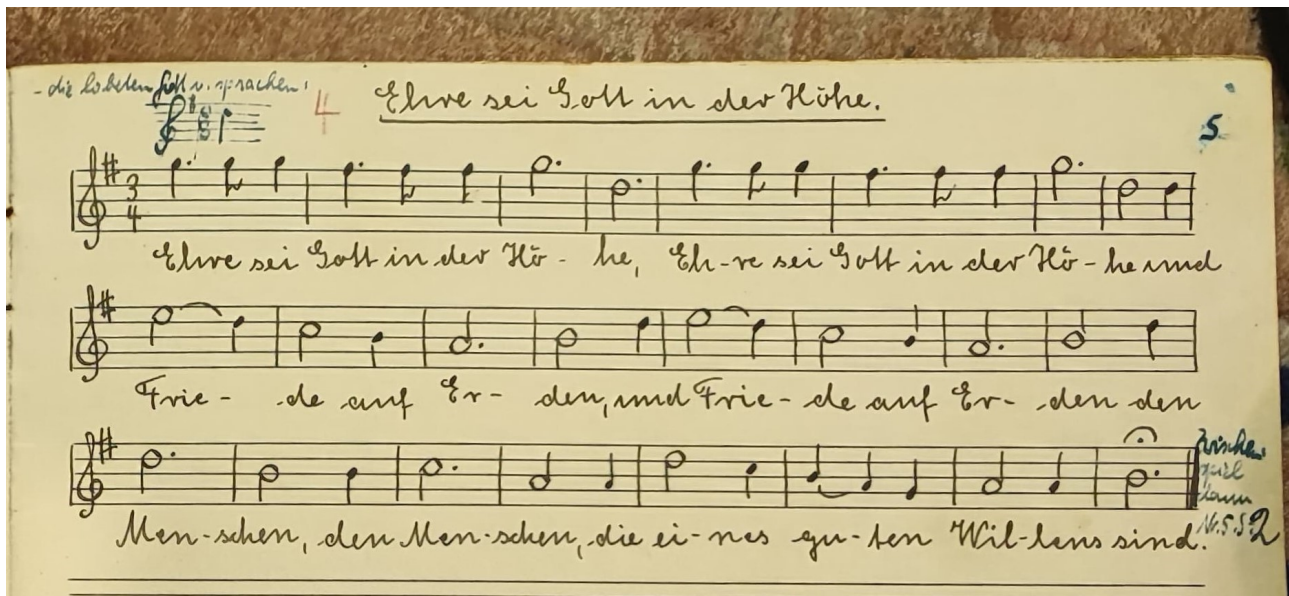 - die lobeten Gott u. sprachen:
4
Ehre sei Gott in der Höhe.
5
3
4
Ehre sei Gott in der Hö - he, Eh-re sei Gott in der Hö-he und
Frie - de auf Er - den, und Frie - de auf Er - den den
Men-schen, den Men-schen, die ei-nes gu-ten Wil-lens sind.
Zwischen-
spiel
dann
Nr. 5 S. 2